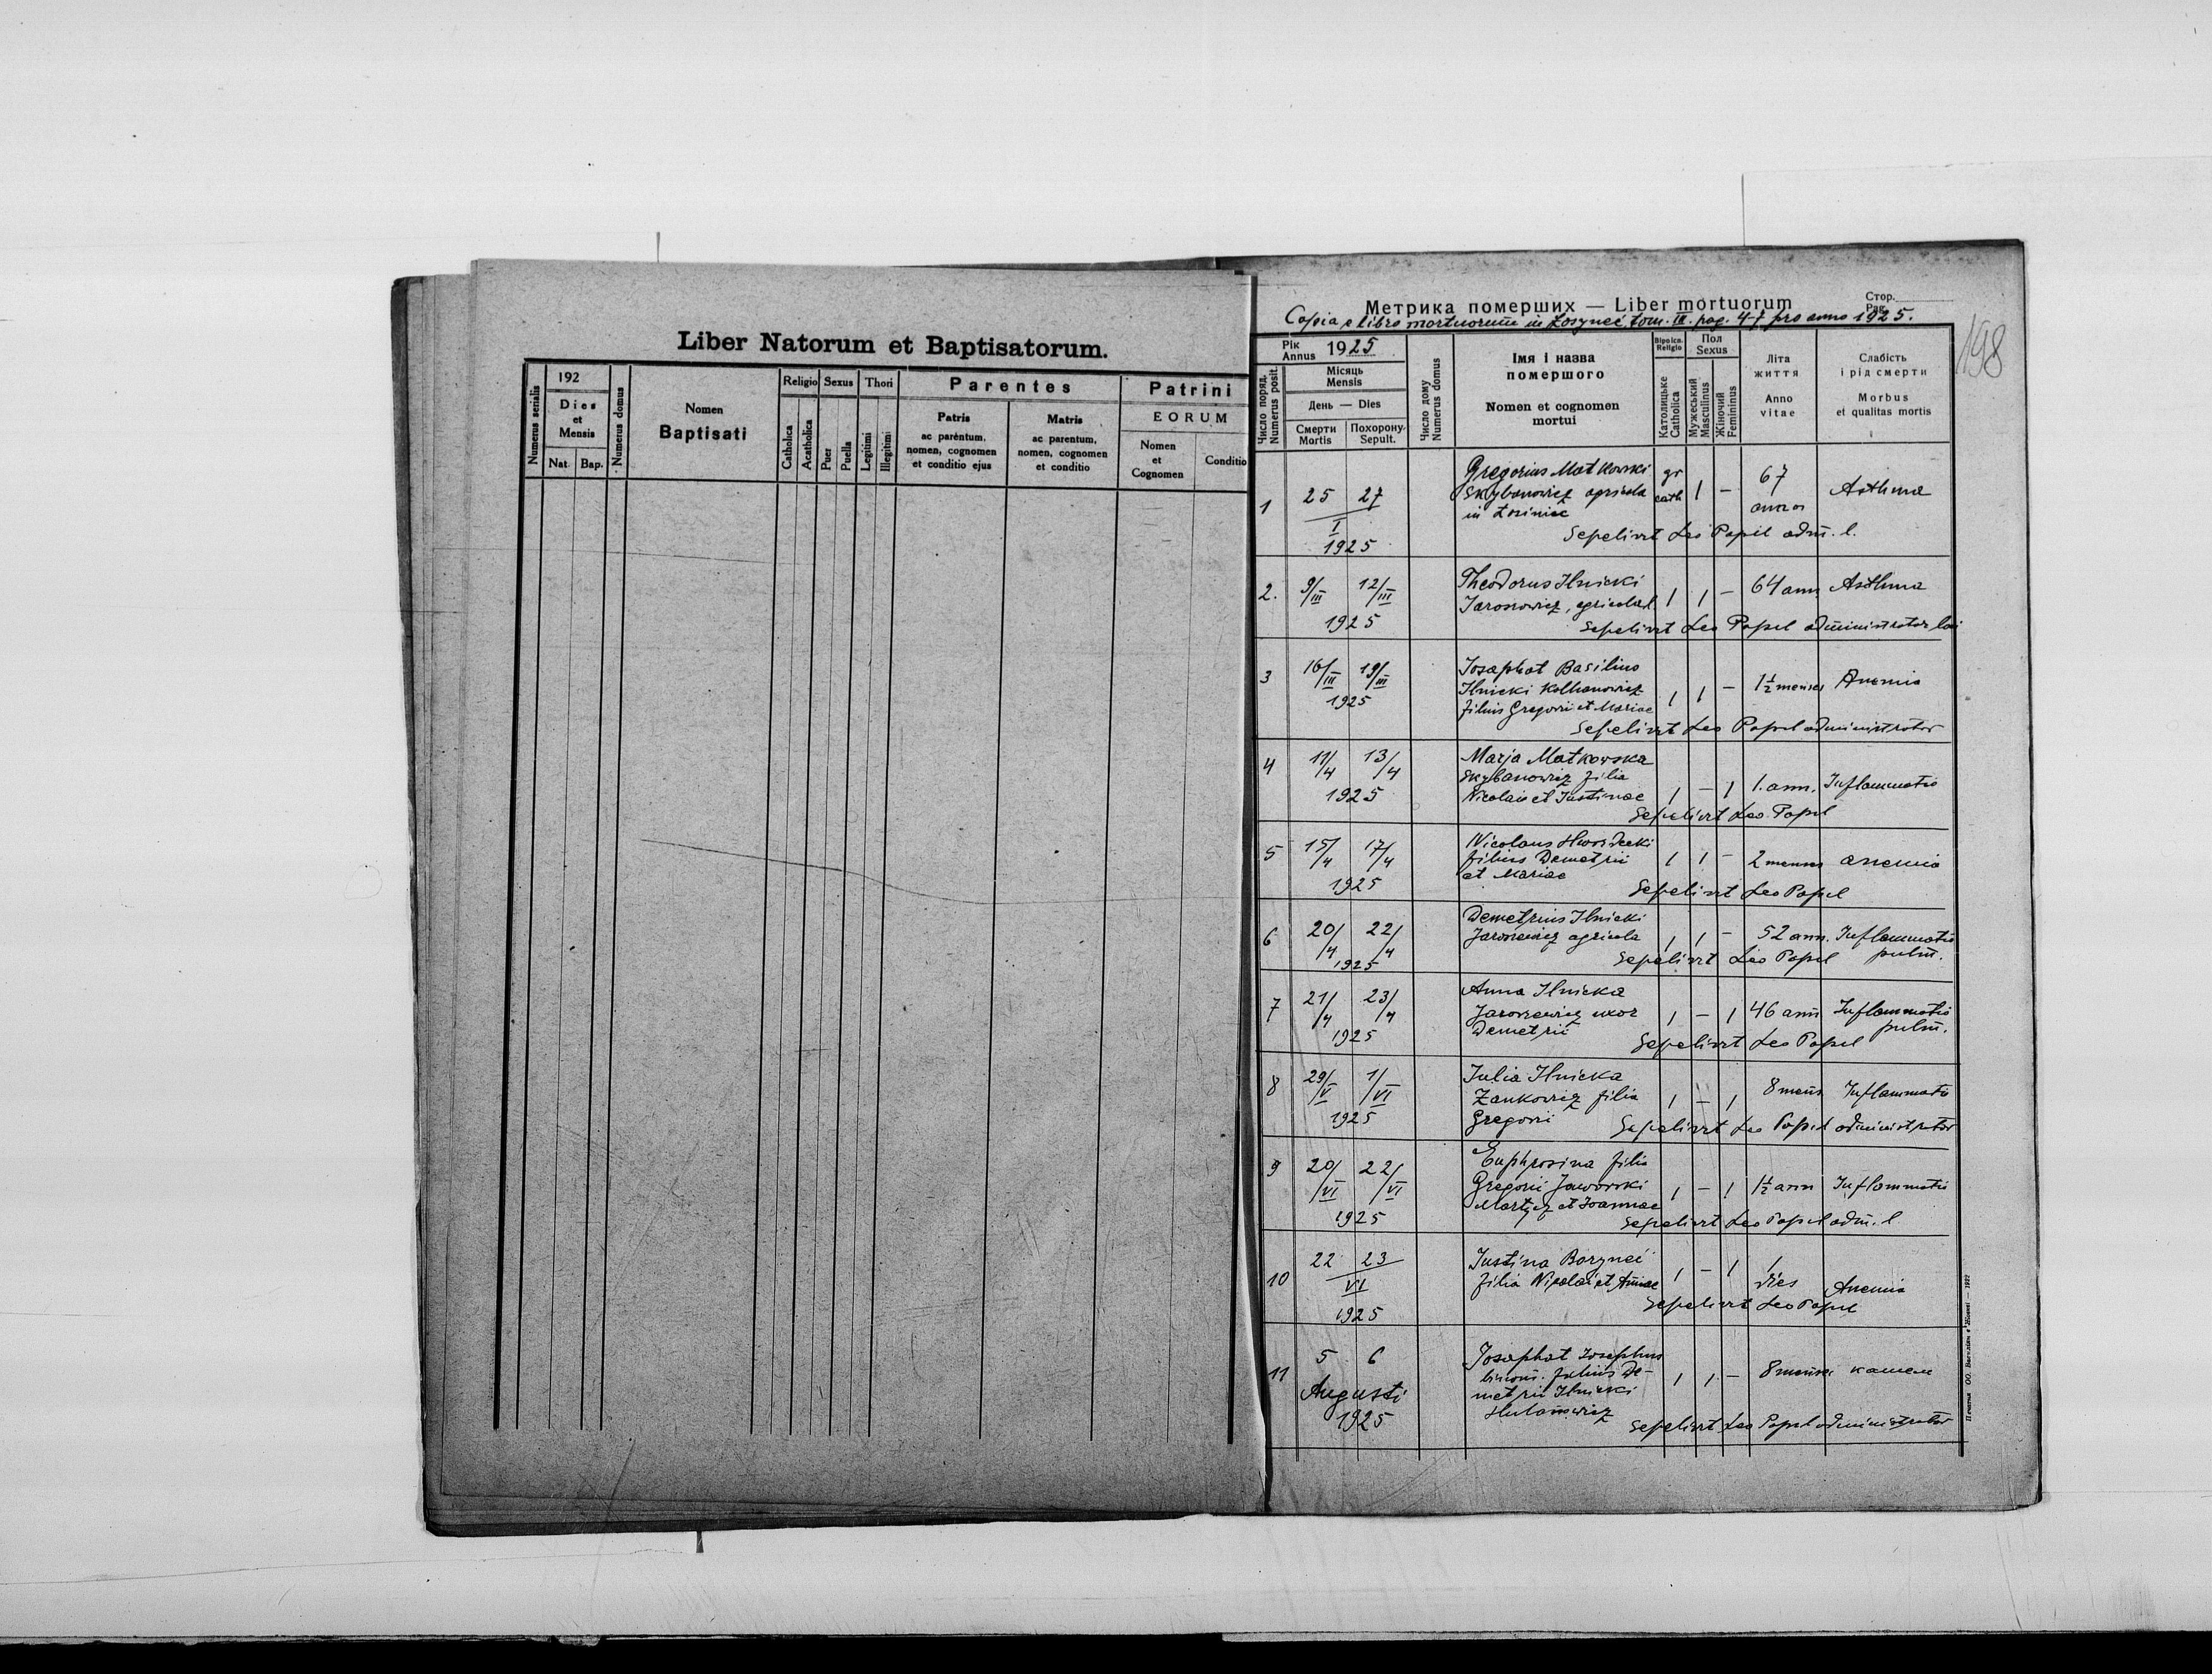 Liber Natorum et Baptisatorum.
Numerus serialis
192
Dies
et
Mensis
Nat. Bap.
Numerus domus
Nomen
Baptisati
Religio Sexus Thori
Catholica
Acatholica
Puer
Puella
Legitimi
Illegitimi
Parentes
Patris
ac parentum,
nomen, cognomen
et conditio ejus
Matris
ac parentum,
nomen, cognomen
et conditio
Patrini
EORUM
Nomen
et
Cognomen
Conditio
Метрика померших — Liber mortuorum
Стор.
Pag.
Copia e libro mortuorum in Łosyneć tom. III. pag. 4-7 pro anno 1925.
198
Число поряд.
Numerus posit.
Рік
Annus 1925
Місяць
Mensis
День — Dies
Смерти
Mortis
Похорону
Sepult.
Число дому
Numerus domus
Імя і назва
помершого
Nomen et cognomen
mortui
Religio
Католицьке
Catholica
Пол
Sexus
Мужеський
Masculinus
Жіночий
Femininus
Літа
життя
Anno
vitae
Слабість
і рід смерти
Morbus
et qualitas mortis
1 25 27
I
1925
Gregorius Matkowski
Skybanowicz agricola
in Łosiniec
gr
cath 1 –
67
annos
Asthma
Sepelivit Leo Popil adm. l.
2. 9/III 12/III
1925
Theodorus Ilnicki
Jarosowicz, agricola l.
1 1 – 64 ann Asthma
Sepelivit Leo Popel administrator loci
3 16/III 19/III
1925
Josaphat Basilius
Ilnicki Kolhanowicz
filius Gregorii et Mariae
1 1 – 1½ menses Anemia
Sepelivit Leo Popel administrator
4 11/4 13/4
1925
Marja Matkowska
Skybanowicz filia
Nicolai et Justinae
1 – 1 1. ann. Inflammatio
Sepelivit Leo Popel
5 15/4 17/4
1925
Nicolaus
filius Demetrii
et Mariae
1 1 – 2 menses anemia
Sepelivit Leo Popel
6 20/4 22/4
1925
Demetrius Ilnicki
Jarosiewicz agricola
1 1 – 52 ann. Inflammatio
pulm.
Sepelivit Leo Popel
7 21/4 23/4
1925
Anna Ilnicka
Jarosiewicz uxor
Demetrii
1 – 1 46 ann Inflammatio
pulm.
Sepelivit Leo Popel
8 29/V 1/VI
1925
Julia Ilnicka
Zankowicz filia
Gregorii
1 – 1 8 mens Inflammatio
Sepelivit Leo Popel administrator
9 20/VI 22/VI
1925
Euphrosina filia
Gregorii Jaworski
Martycz et Joannae
1 – 1 1½ ann Inflammatio
Sepelivit Leo Popel adm. l
10 22 23
VI
1925
Justina Boryneć
filia Nicolai et Annae
1 – 1 1
dies
Anemia
Sepelivit Leo Popel
11 5 6
Augusti
1925
Josaphat Josephus
binom. filius De-
metrii Ilnicki
Hulanowicz
1 1 – 8 menses кашель
Sepelivit Leo Popel administrator